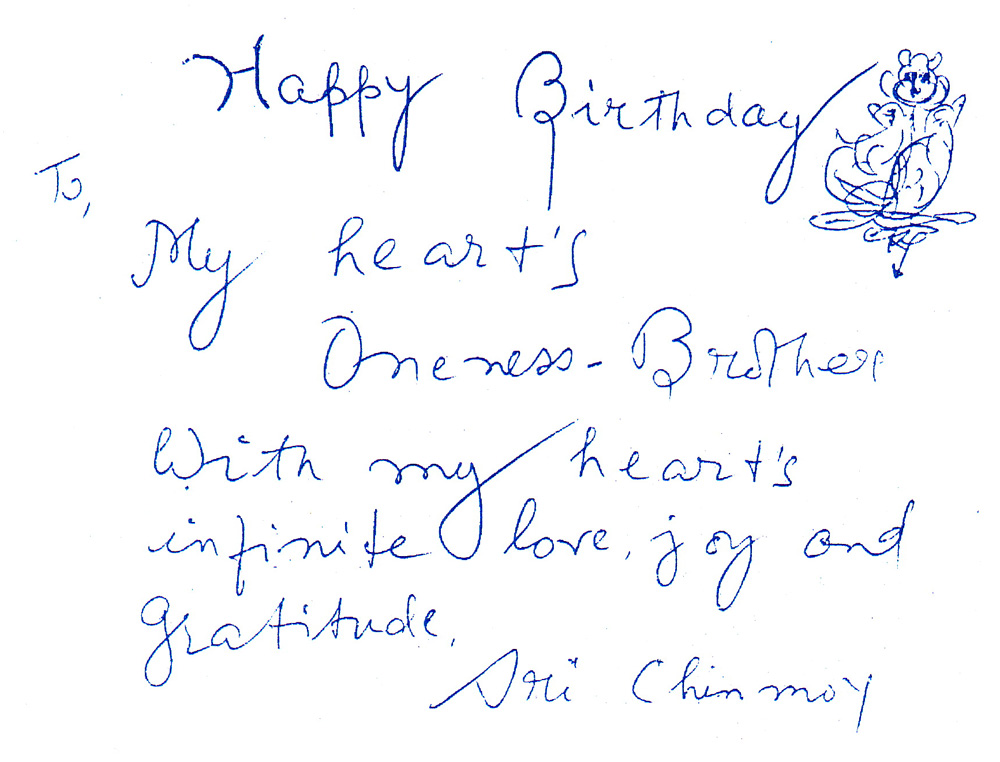 Happy Birthday
To,
My heart's
Oneness-Brother
With my heart's
infinite love, joy and
gratitude.
Sri Chinmoy